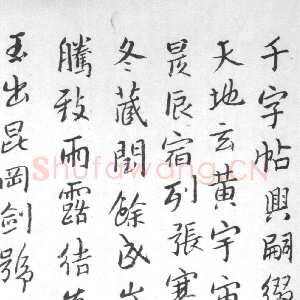 千字帖興嗣綴
天地玄黃宇宙
昃辰宿列張寒
冬藏閏餘成歲
騰致雨露結為
玉出昆岡劍號
Shufawang.CN